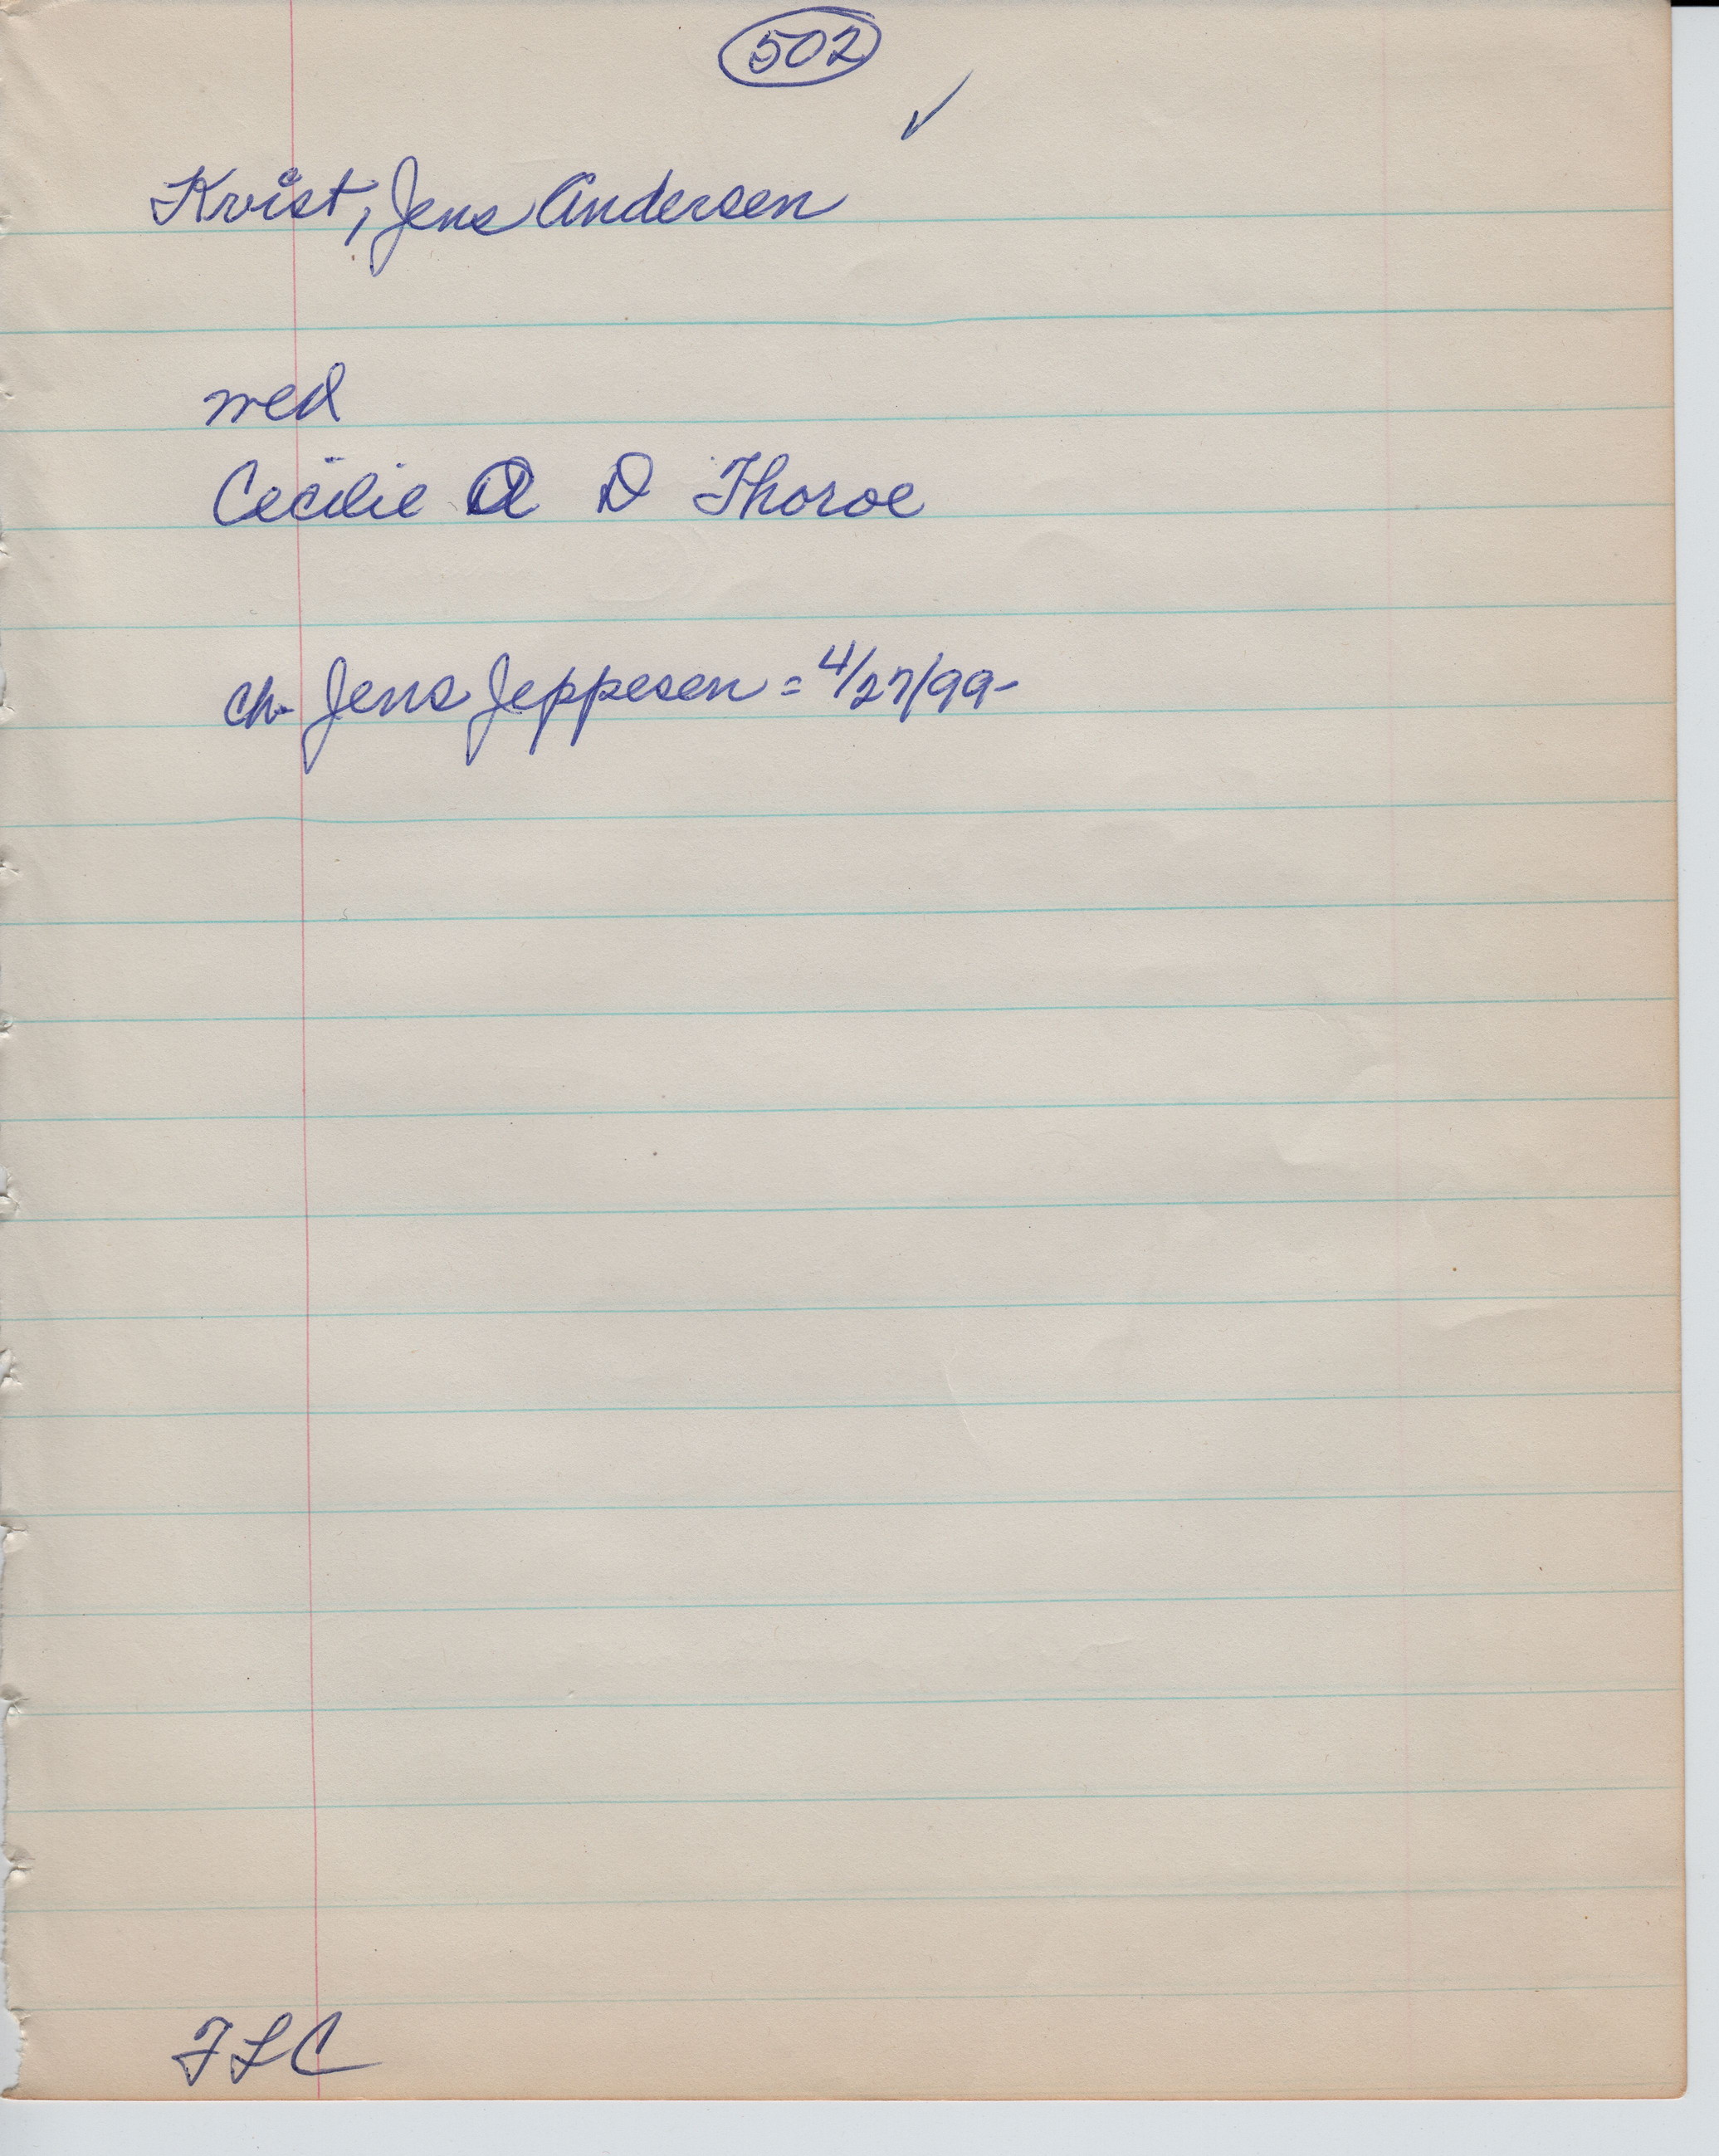 502
✓
Kvist, Jens Andersen
med
Cecilie A D Thoroe
ch. Jens Jeppesen = 4/27/99-
FLC